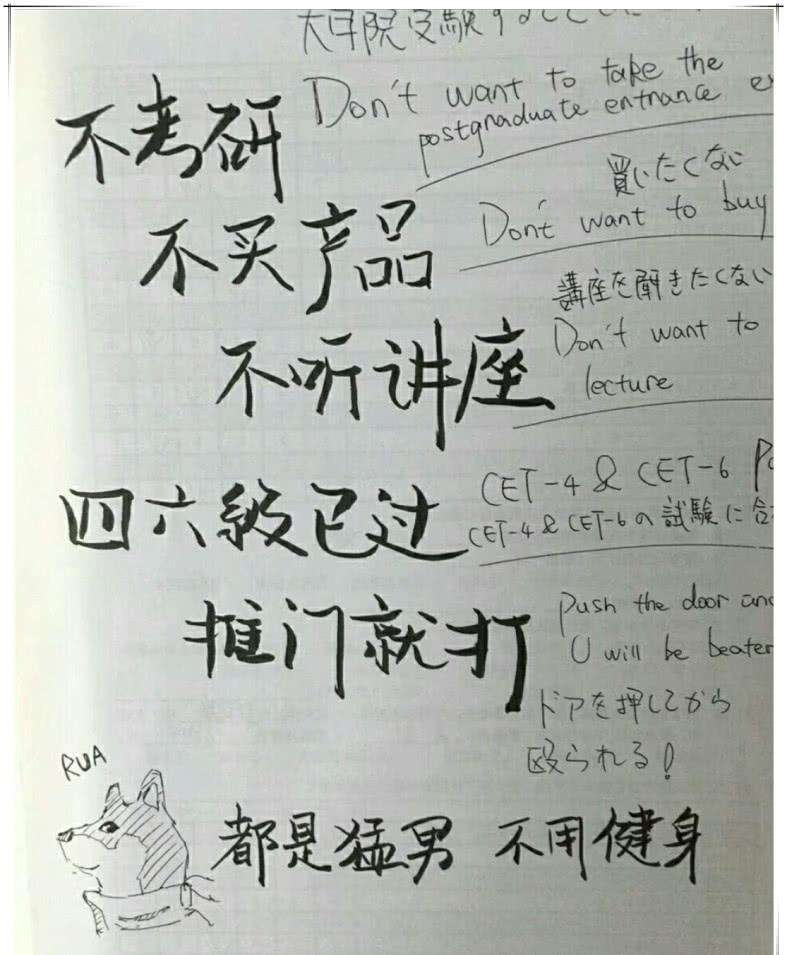 大学院受験することに
不考研
Don't want to take the
postgraduate entrance e
買いたくない
不买产品
Don't want to buy
講座を聞きたくない
不听讲座
Don't want to
lecture
CET-4 & CET-6 Pa
四六级已过
CET-4 & CET-6の試験に合
Push the door and
推门就打
U will be beaten
ドアを押してから
殴られる!
RUA
都是猛男 不用健身